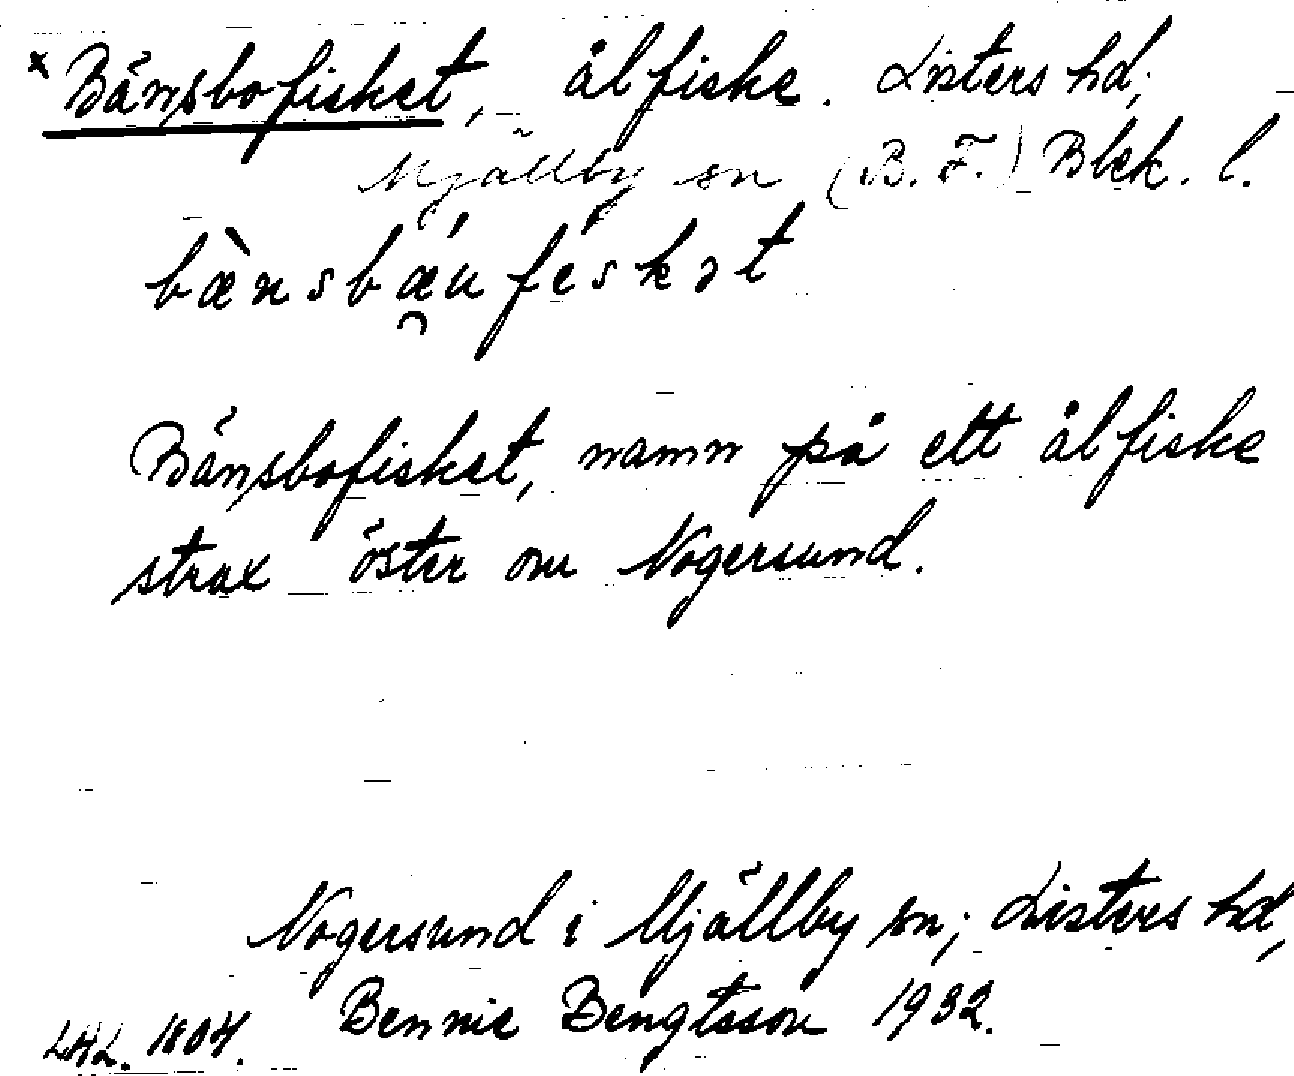 x Bänsbofisket, ålfiske. Listers hd;
Mjällby sn (B. F.) Blek. l.
bæ̀nsbǽ̯ufeskət
Bänsbofisket, namn på ett ålfiske
strax öster om Nogersund.
Nogersund i Mjällby sn; Listers hd,
Bennie Bengtsson 1932.
LAL. 1804.